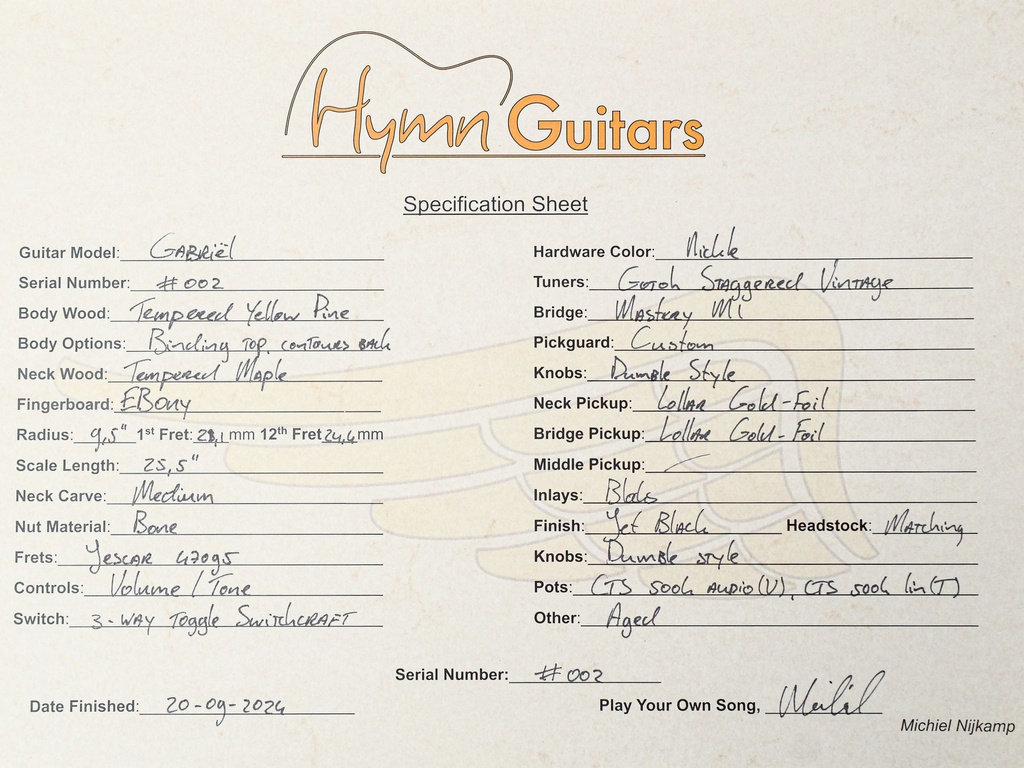 Hymn Guitars
Specification Sheet
Guitar Model: GABRiël
Serial Number: #002
Body Wood: Tempered Yellow Pine
Body Options: Binding TOP, contours BACK
Neck Wood: Tempered Maple
Fingerboard: EBony
Radius: 9,5" 1st Fret: 21,1 mm 12th Fret 24,4 mm
Scale Length: 25,5"
Neck Carve: Medium
Nut Material: Bone
Frets: Jescar 47095
Controls: Volume / Tone
Switch: 3-WAY Toggle SwitchCRAFT
Hardware Color: Nickle
Tuners: Gotoh Staggered Vintage
Bridge: Mastery M1
Pickguard: Custom
Knobs: Dumble Style
Neck Pickup: Lollar Gold-Foil
Bridge Pickup: Lollar Gold-Foil
Middle Pickup: /
Inlays:
Finish: Jet Black Headstock: Matching
Knobs: Dumble style
Pots: CTS 500k AUDIO(V), CTS 500k lin(T)
Other: Aged
Serial Number: #002
Date Finished: 20-09-2024
Play Your Own Song,
Michiel Nijkamp